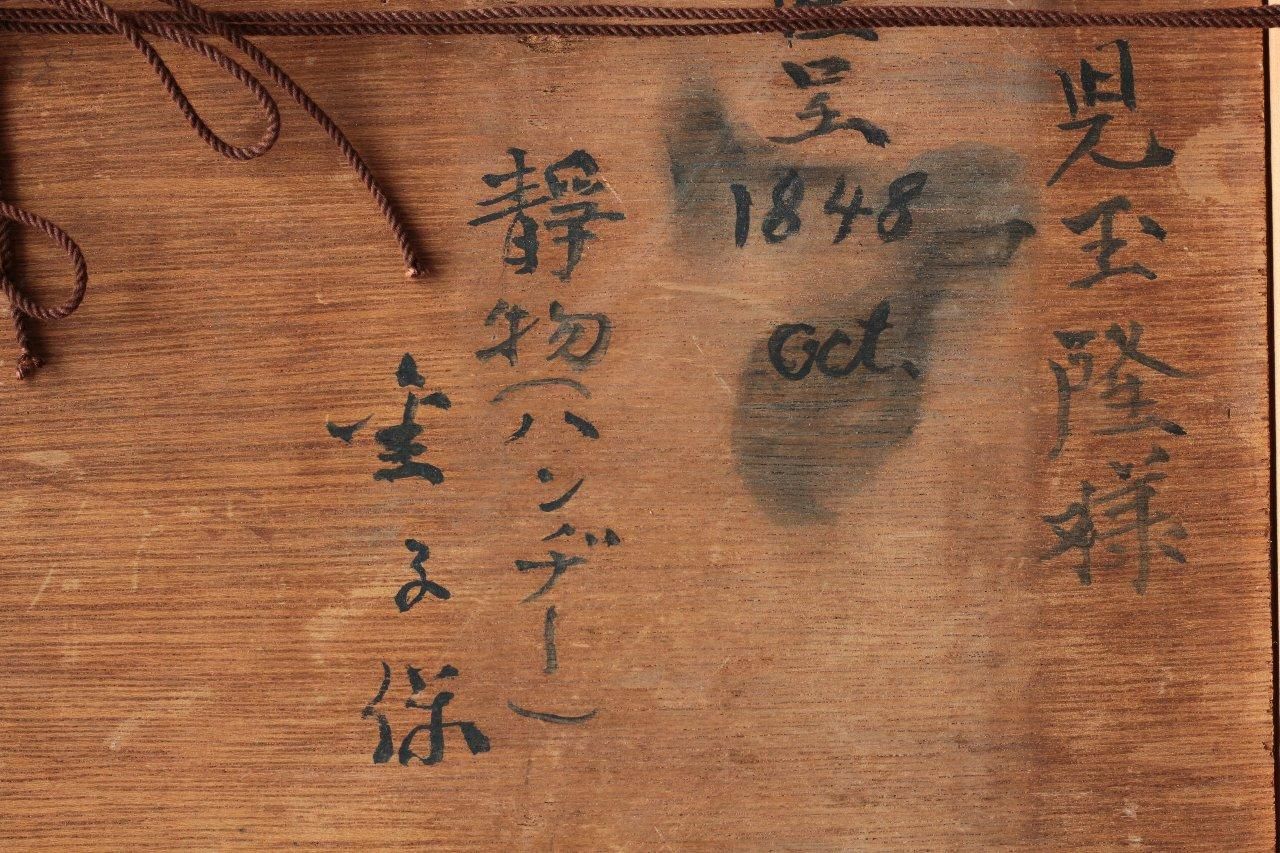 児玉隆様
呈
1848
Oct.
靜物(ハンヂー)
金子保